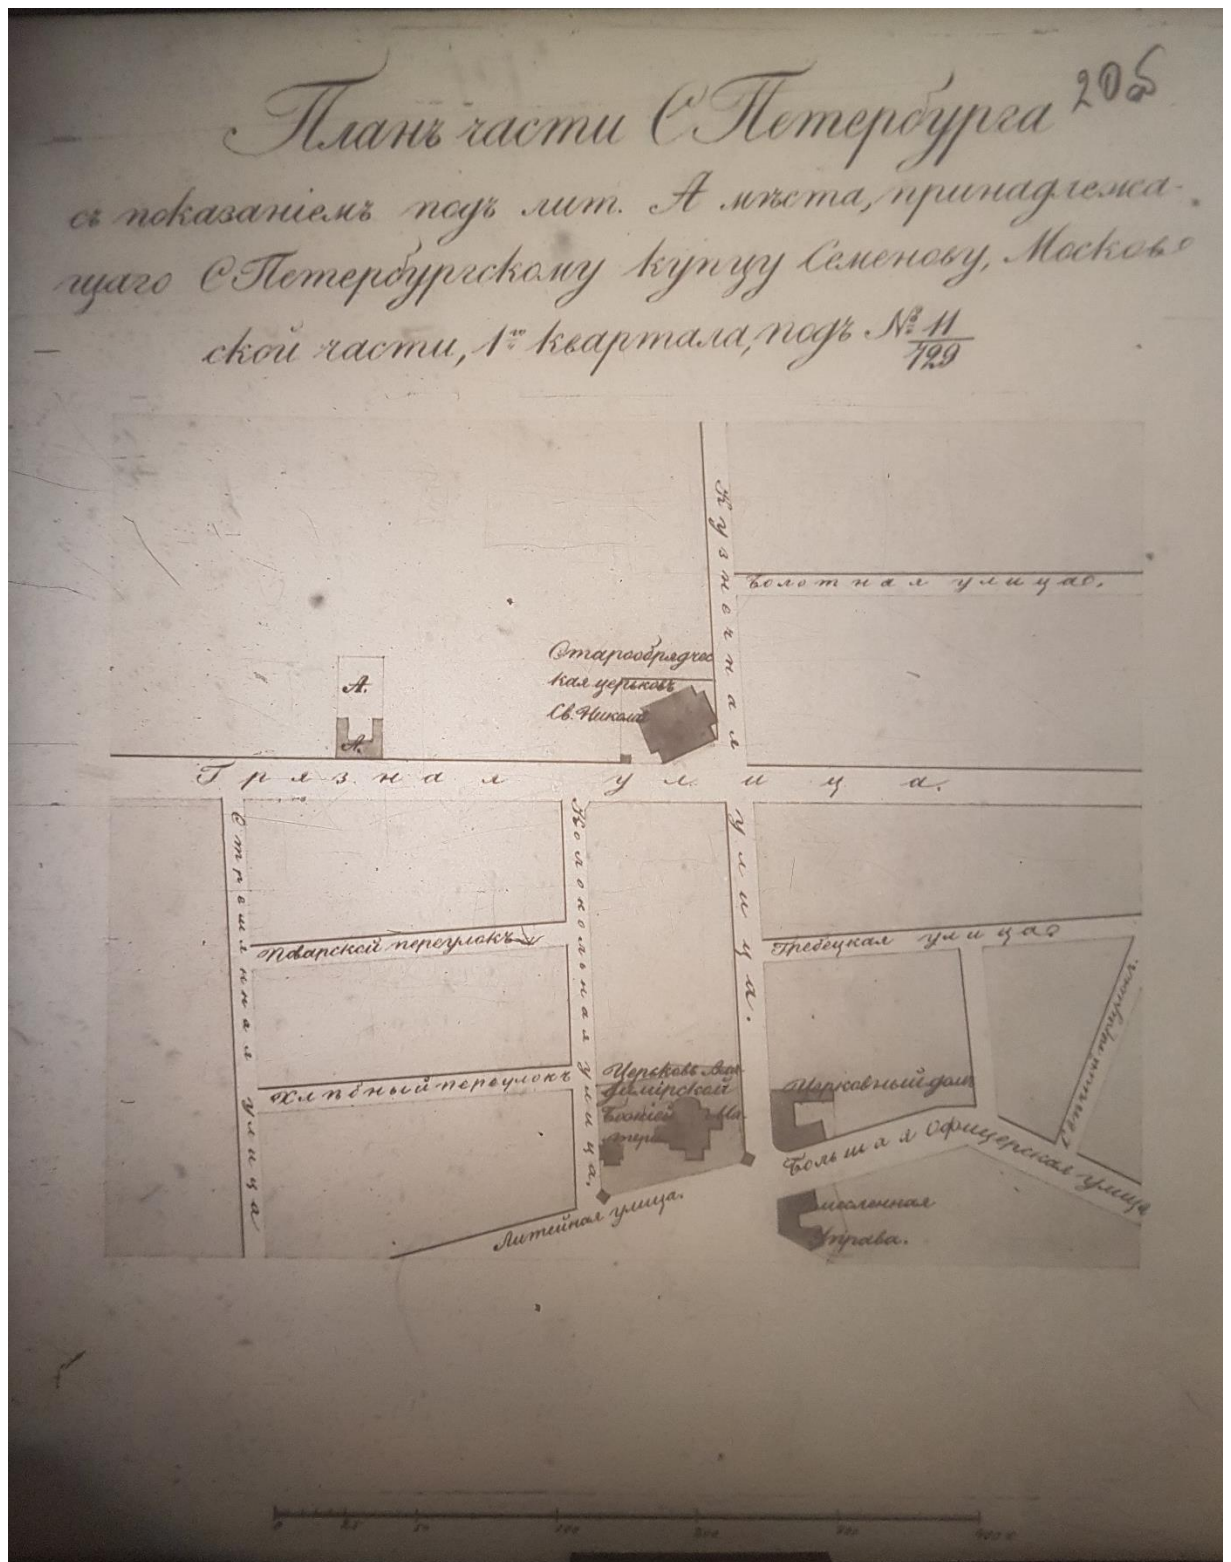 20б
Планъ части С Петербурга
съ показаніемъ подъ лит. А мѣста, принадлежа-
щаго С Петербургскому купцу Семенову, Московъ
ской части, 1го квартала, подъ № 11/129
Кузнечная
Болотная улица.
Старообрядчес
кая церьковь
Св. Николая
А.
А.
Грязная улица.
Стремянная улица
Колокольная улица.
улица.
Поварской переулокъ
Гребецкая улица
Хлѣбный переулокъ
Церьковь Вла-
димірской
Божіей Ма-
тери
Церковный домъ
Большая Офицерская улица
Литейная улица.
Управа.
0 25 50 100 200 300 400